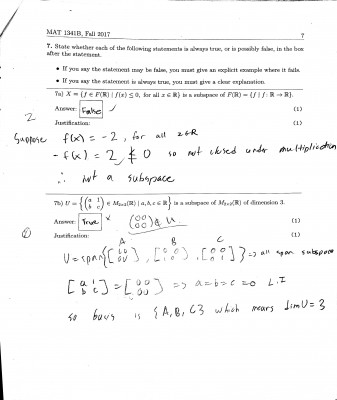 MAT 1341B, Fall 2017
7
7. State whether each of the following statements is always true, or is possibly false, in the box
after the statement.
• If you say the statement may be false, you must give an explicit example where it fails.
• If you say the statement is always true, you must give a clear explanation.
7a) X = {f ∈ F(ℝ) | f(x) ≤ 0, for all x ∈ ℝ} is a subspace of F(ℝ) = {f | f: ℝ → ℝ}.
Answer: False ✓ (1)
Justification: (1)
2
Suppose f(x) = -2, for all x∈ℝ
-f(x) = 2 ≰ 0 so not closed under multiplication
∴ not a subspace
7b) U = {(a 1
b c) ∈ M₂ₓ₂(ℝ) | a, b, c ∈ ℝ} is a subspace of M₂ₓ₂(ℝ) of dimension 3.
Answer: True × (0 0
0 0) ∉ U. (1)
Justification: (1)
0
A B C
U = span{[ ], [0 0
1 0], [0 0
0 1]} => all span subspace
[a 1
b c] = [0 0
0 0] => a=b=c=0 L.I
so basis is {A, B, C} which means dim U = 3